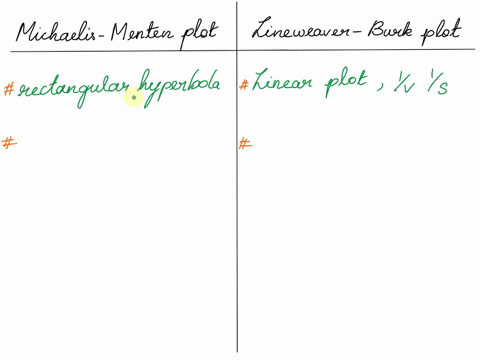 Michaelis-Menten plot
Lineweaver-Burk plot
# rectangular hyperbola
# Linear plot, 1/V 1/S
#
#